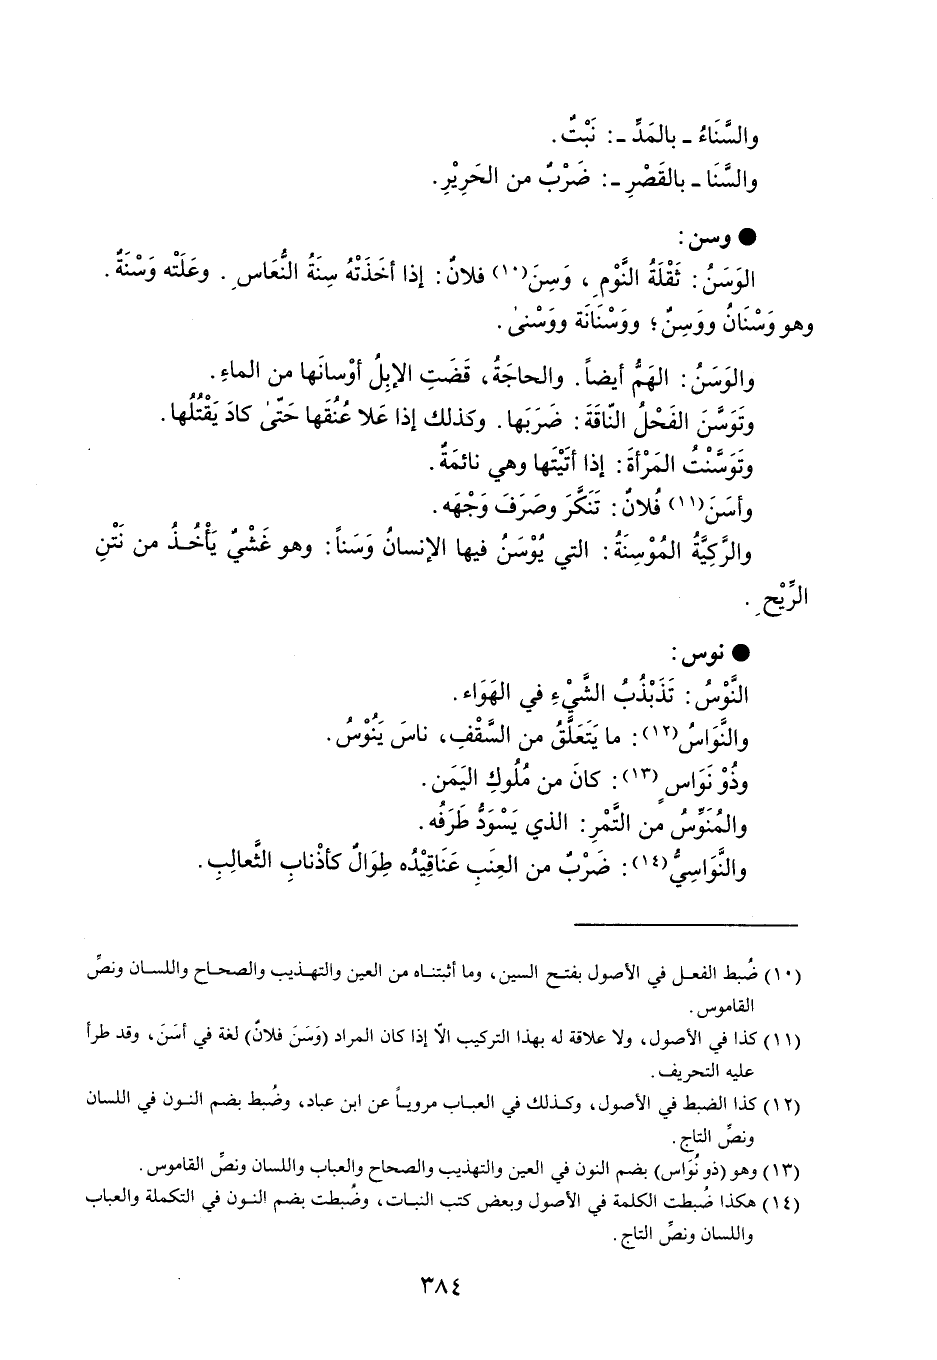 والسَّنَاءُ ـ بالمَدِّ ـ: نَبْتٌ.
والسَّنَا ـ بالقَصْرِ ـ: ضَرْبٌ من الحَرِيْرِ.
● وسن:
الوَسَنُ: ثَقْلَةُ النَّوْمِ، وَسِنَ(١٠) فلانٌ: إذا أخَذَتْهُ سِنَةُ النُّعَاسِ. وعَلَتْه وَسْنَةٌ.
وهو وَسْنَانُ ووَسِنٌ؛ ووَسْنَانَة ووَسْنىٰ.
والوَسَنُ: الهَمُّ أيضاً. والحاجَةُ، قَضَتِ الإبِلُ أوْسانَها من الماءِ.
وتَوَسَّنَ الفَحْلُ النّاقَةَ: ضَرَبَها. وكذلك إذا عَلا عُنُقَها حَتّىٰ كادَ يَقْتُلُها.
وتَوَسَّنْتُ المَرْأةَ: إذا أتَيْتَها وهي نائمَةٌ.
وأسَنَ(١١) فُلانٌ: تَنَكَّرَ وصَرَفَ وَجْهَه.
والرَّكِيَّةُ المُوْسِنَةُ: التي يُوْسَنُ فيها الإنسانُ وَسَناً: وهو غَشْيٌ يَأْخُذُ من نَتْنِ
الرِّيْحِ.
● نوس:
النَّوْسُ: تَذَبْذُبُ الشَّيْءِ في الهَوَاء.
والنَّوَاسُ(١٢): ما يَتَعَلَّقُ من السَّقْفِ، ناسَ يَنُوْسُ.
وذُوْ نَوَاسٍ(١٣): كانَ من مُلُوكِ اليَمَن.
والمُنَوِّسُ من التَّمْرِ: الذي يَسْوَدُّ طَرَفُه.
والنَّوَاسِيُّ(١٤): ضَرْبٌ من العِنَبِ عَنَاقِيْدُه طِوَالٌ كأذْنابِ الثَّعالِبِ.
(١٠) ضُبط الفعل في الأصول بفتح السين، وما أثبتناه من العين والتهذيب والصحاح واللسان ونصِّ
القاموس.
(١١) كذا في الأصول، ولا علاقة له بهذا التركيب الاّ إذا كان المراد (وَسَنَ فلانٌ) لغة في أسَنَ، وقد طرأ
عليه التحريف.
(١٢) كذا الضبط في الأصول، وكذلك في العباب مروياً عن ابن عباد، وضُبط بضم النون في اللسان
ونصِّ التاج.
(١٣) وهو (ذو نُوَاس) بضم النون في العين والتهذيب والصحاح والعباب واللسان ونصِّ القاموس.
(١٤) هكذا ضُبطت الكلمة في الأصول وبعض كتب النبات، وضُبطت بضم النون في التكملة والعباب
واللسان ونصِّ التاج.
٣٨٤